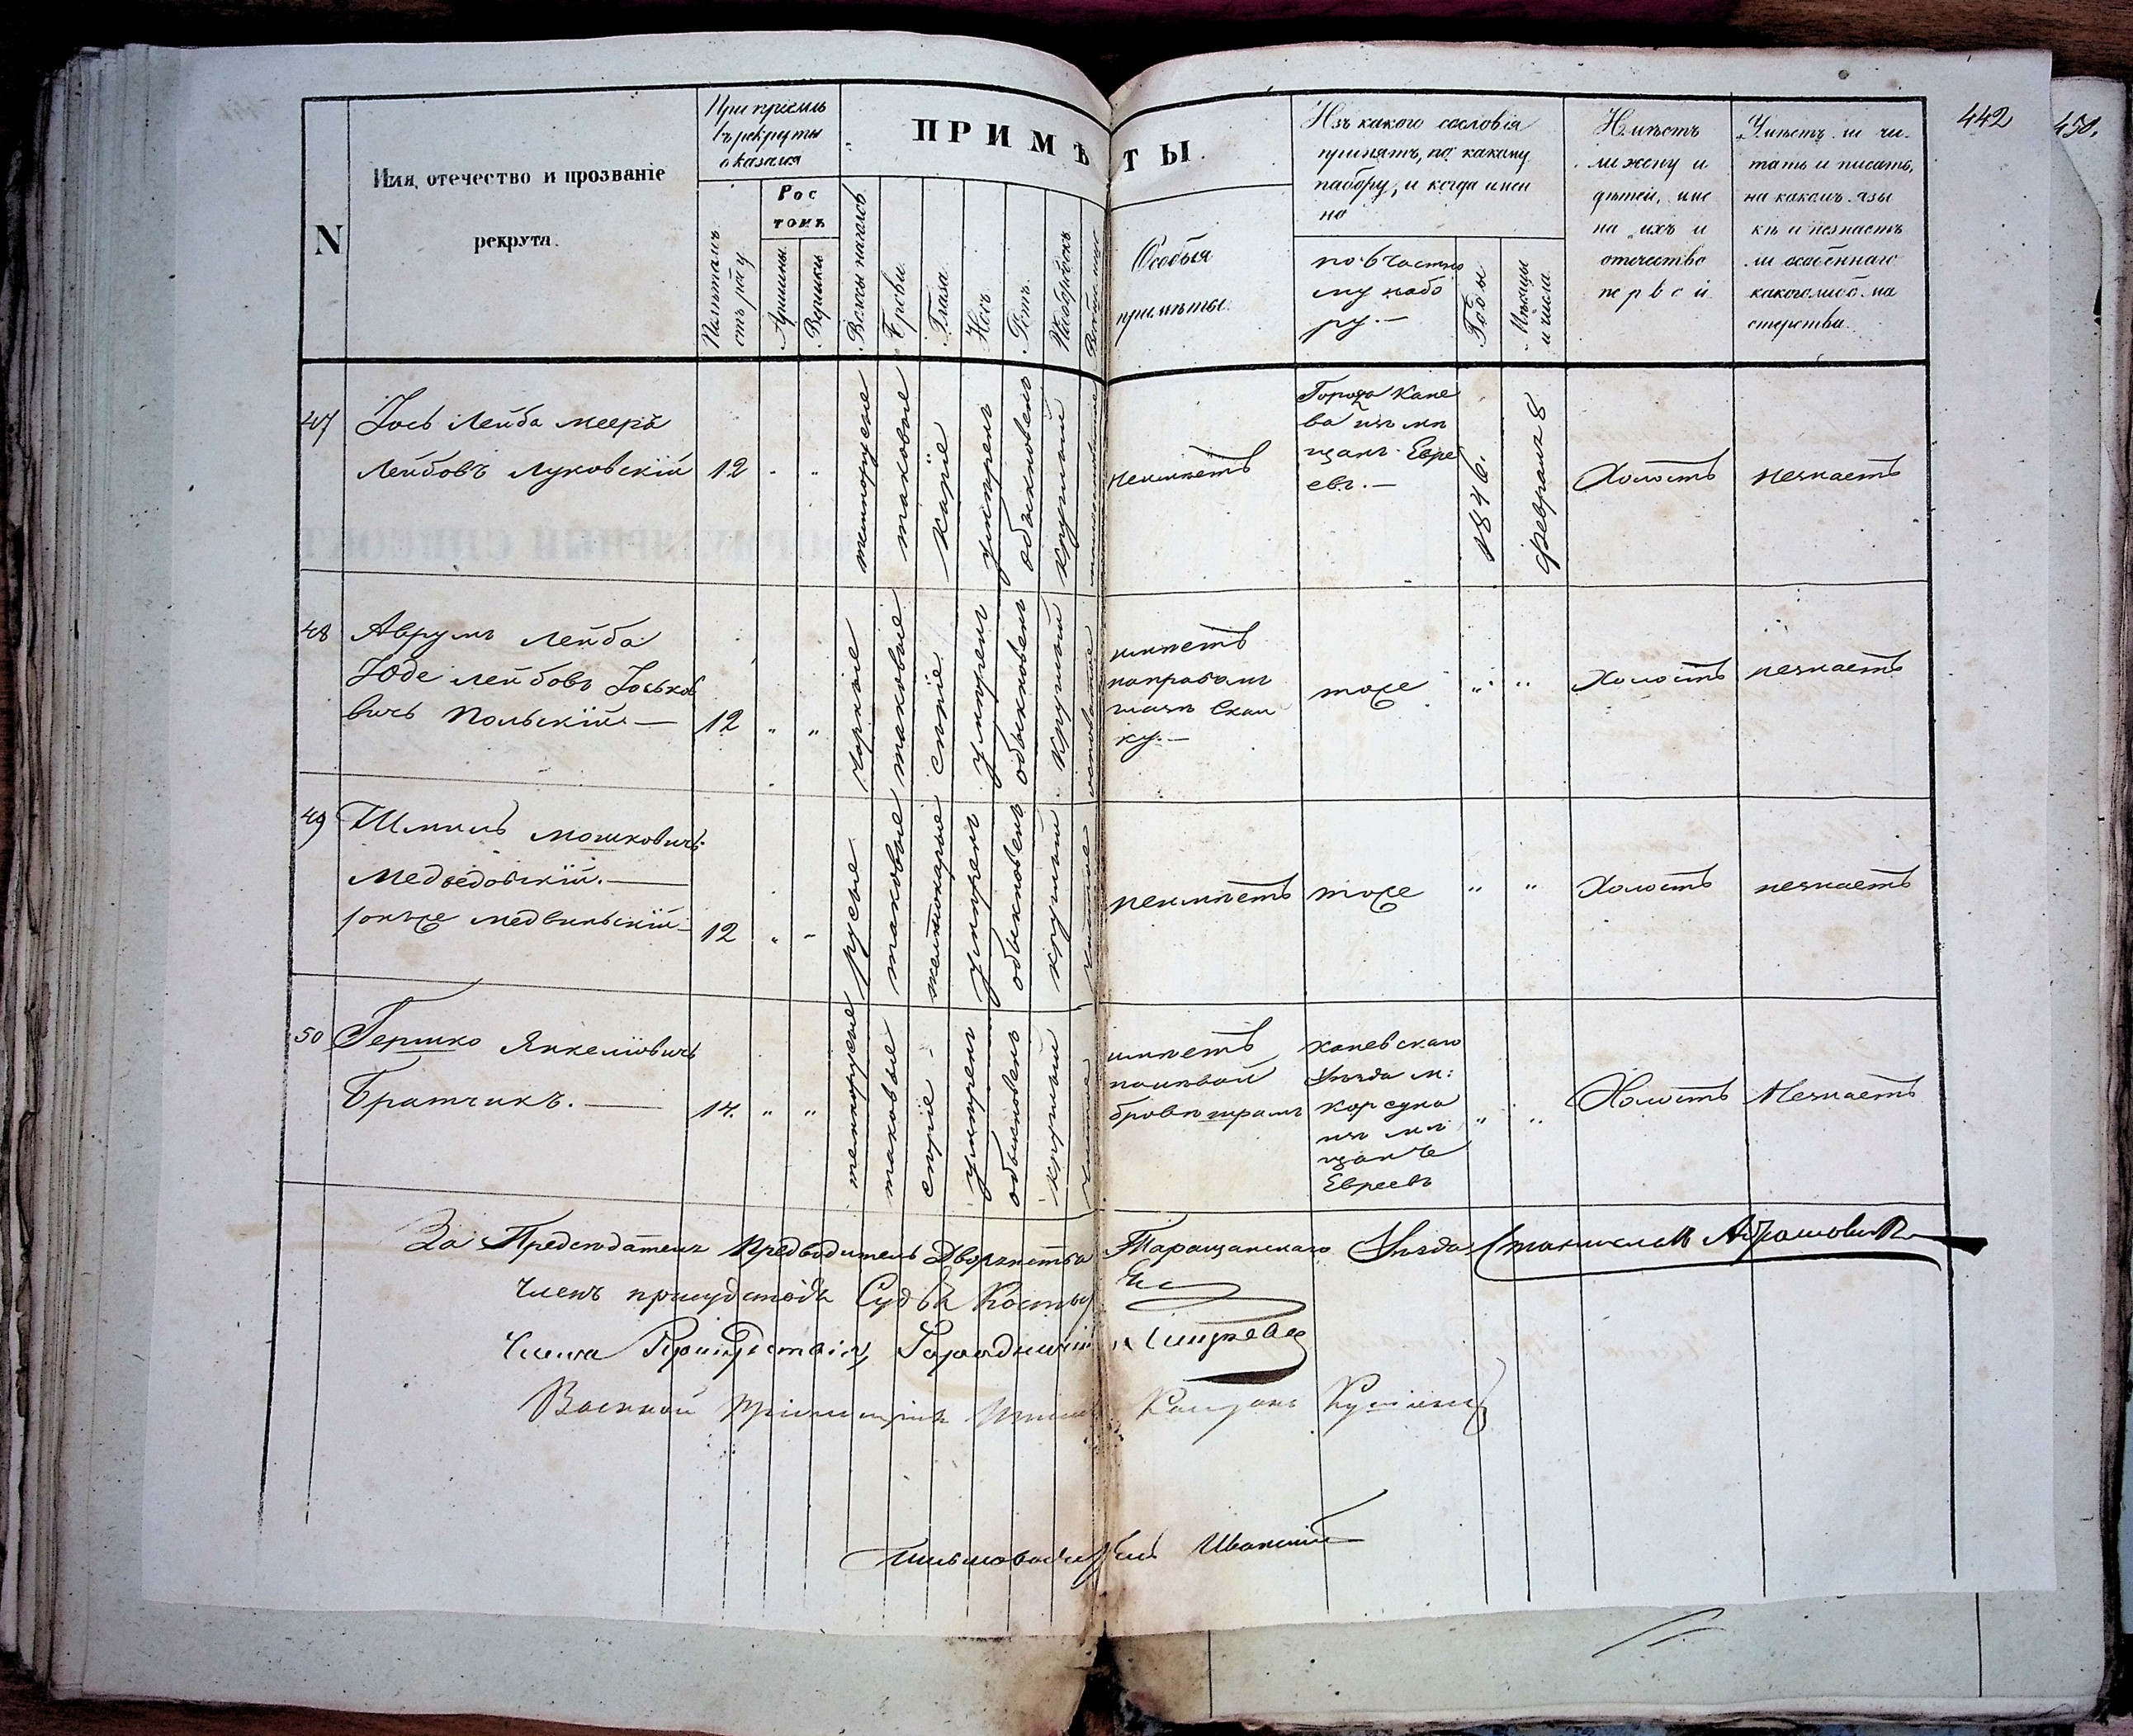 442
450.
N
Имя, отечество и прозваніе
рекрута.
При пріемѣ
въ рекруты
оказался
Рос
томъ
Аршины
Вершки
ПРИМѢТЫ.
Волосы на головѣ
Брови
Глаза
Носъ
Ротъ
Подбородокъ
Особыя
примѣты.
Изъ какого сословія
принятъ, по какому
набору, и когда имен
но
по 6 частно
му набо
ру.—
Годы
Мѣсяцы
и числа
Имѣетъ
ли жену и
дѣтей, име
на ихъ и
отечество
первой
Умѣетъ ли чи-
тать и писать,
на какомъ язы
кѣ и незнаетъ
ли особеннаго
какого либо ма
стерства.
47
Іось Лейба Мееръ
Лейбовъ Луковскій
12
темнорусые
таковые
карiе
умѣренъ
обыкновенъ
круглый
неимѣетъ
Города Кане
ва изъ мѣ
щанъ Евре
евъ.—
1846.
Февраля 8
Холостъ
незнаетъ
48
Аврумъ Лейба
Юде Лейбовъ Іоськов
вичь Польскій.—
12
черные
таковые
сѣрые
умѣренъ
обыкновенъ
круглый
имѣетъ
на правомъ
глазѣ
ку.—
тоже
Холостъ
незнаетъ
49
Шмиль Мошковичъ
Медведовскій.—
онъ же Медвинскій
12
русые
таковые
желтокарые
умѣренъ
обыкновенъ
круглый
чистое
неимѣетъ
тоже
Холостъ
незнаетъ
50
Гершко Янкеліовичъ
Братчикъ.—
14.
темнорусые
таковые
сѣріе
умѣренъ
обыкновенъ
круглый
чистое
имѣетъ
на лѣвой
бровѣ шрамъ
Каневскаго
уѣзда м:
Корсуна
изъ мѣ
щанъ
Евреевъ
Холостъ
Незнаетъ
За Предсѣдателя Предводитель Дворянства Таращанскаго Уѣзда Станиславъ Абрамовичъ
Членъ присудствія Судья
Члена Присудствія, Городничій
Военной
Письмоводитель Иванскій